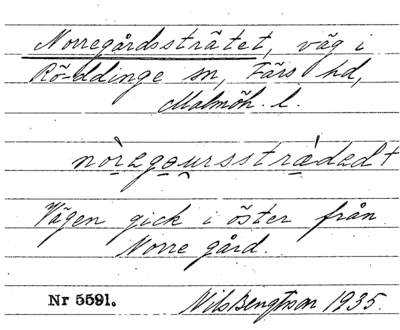 Norregårdssträtet, väg i
Röddinge sn, Färs hd,
Malmöh. l.
Vägen gick i öster från
Norre gård.
Nr 5591. Nils Bengtsson 1935.